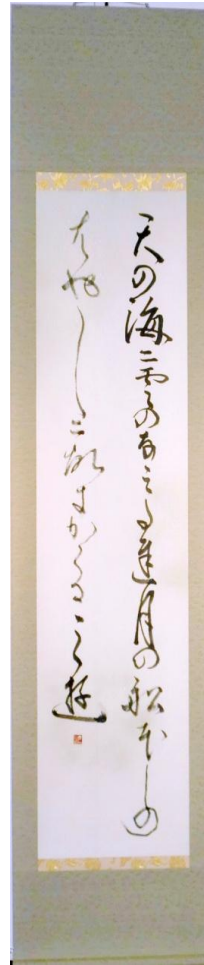 天の海に雲のなみたち月の船ほしの
はやしにこぎかくるみゆ